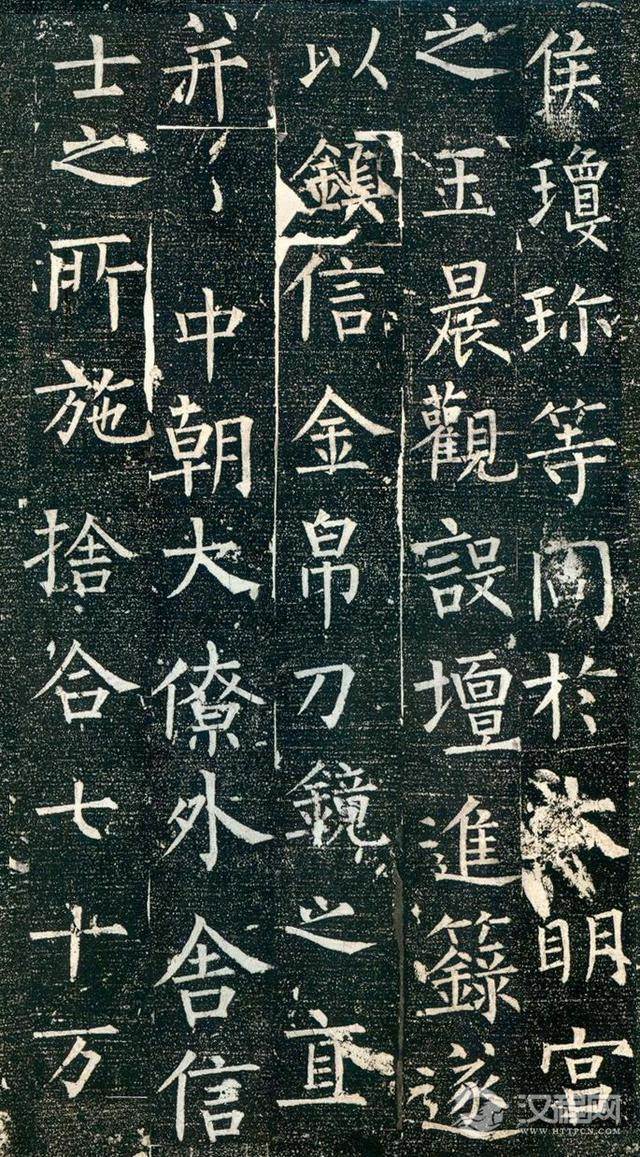 侯瓊珎等同於大明宮
之玉晨觀設壇進籙遂
以鎮信金帛刀鏡之直
并中朝大僚外舍信
士之所施捨合七十万
汉程网
WWW.HTTPCN.COM